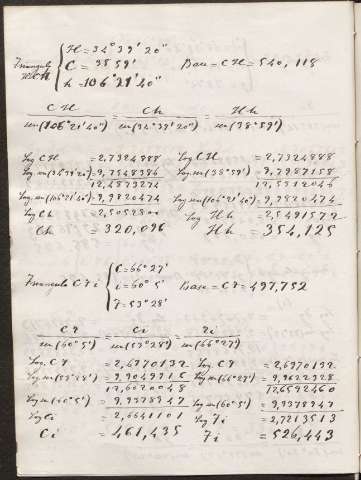 H = 34° 39' 20"
Triangulo HCh C = 38 59' Base = CH = 540, 118
h = 106° 21' 40"
CH / sen(106° 21' 40") = Ch / sen(34° 39' 20") = Hh / sen(38° 59')
Log CH = 2,7324888 Log CH = 2,7324888
Log sen(34° 39' 20") = 9,7548386 Log sen(38° 59') = 9,7987158
12,4873274 12,5312046
Log sen(106° 21' 40") = 9,9820474 Log sen(106° 21' 40") = 9,9820474
Log Ch = 2,5052800 Log Hh = 2,5491572
Ch = 320,096 Hh = 354,125
C = 66° 27'
Triangulo C7i i = 60° 5' Base = C7 = 497,752
7 = 53° 28'
C7 / sen(60° 5') = Ci / sen(53° 28') = 7i / sen(66° 27')
Log C7 = 2,6970132 Log C7 = 2,6970132
Log sen(53° 28') = 9,9049916 Log sen(66° 27') = 9,9622328
12,6020048 12,6592460
Log sen(60° 5') = 9,9378947 Log sen(60° 5') = 9,9378947
Log Ci = 2,6641101 Log 7i = 2,7213513
Ci = 461,435 7i = 526,443